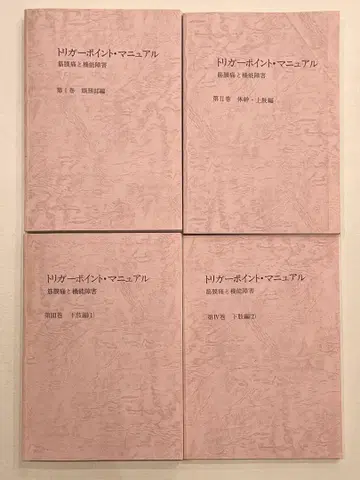 トリガーポイント・マニュアル
筋膜痛と機能障害
第I巻 頭頸部編
トリガーポイント・マニュアル
筋膜痛と機能障害
第II巻 体幹・上肢編
トリガーポイント・マニュアル
筋膜痛と機能障害
第III巻 下肢編(1)
トリガーポイント・マニュアル
筋膜痛と機能障害
第IV巻 下肢編(2)